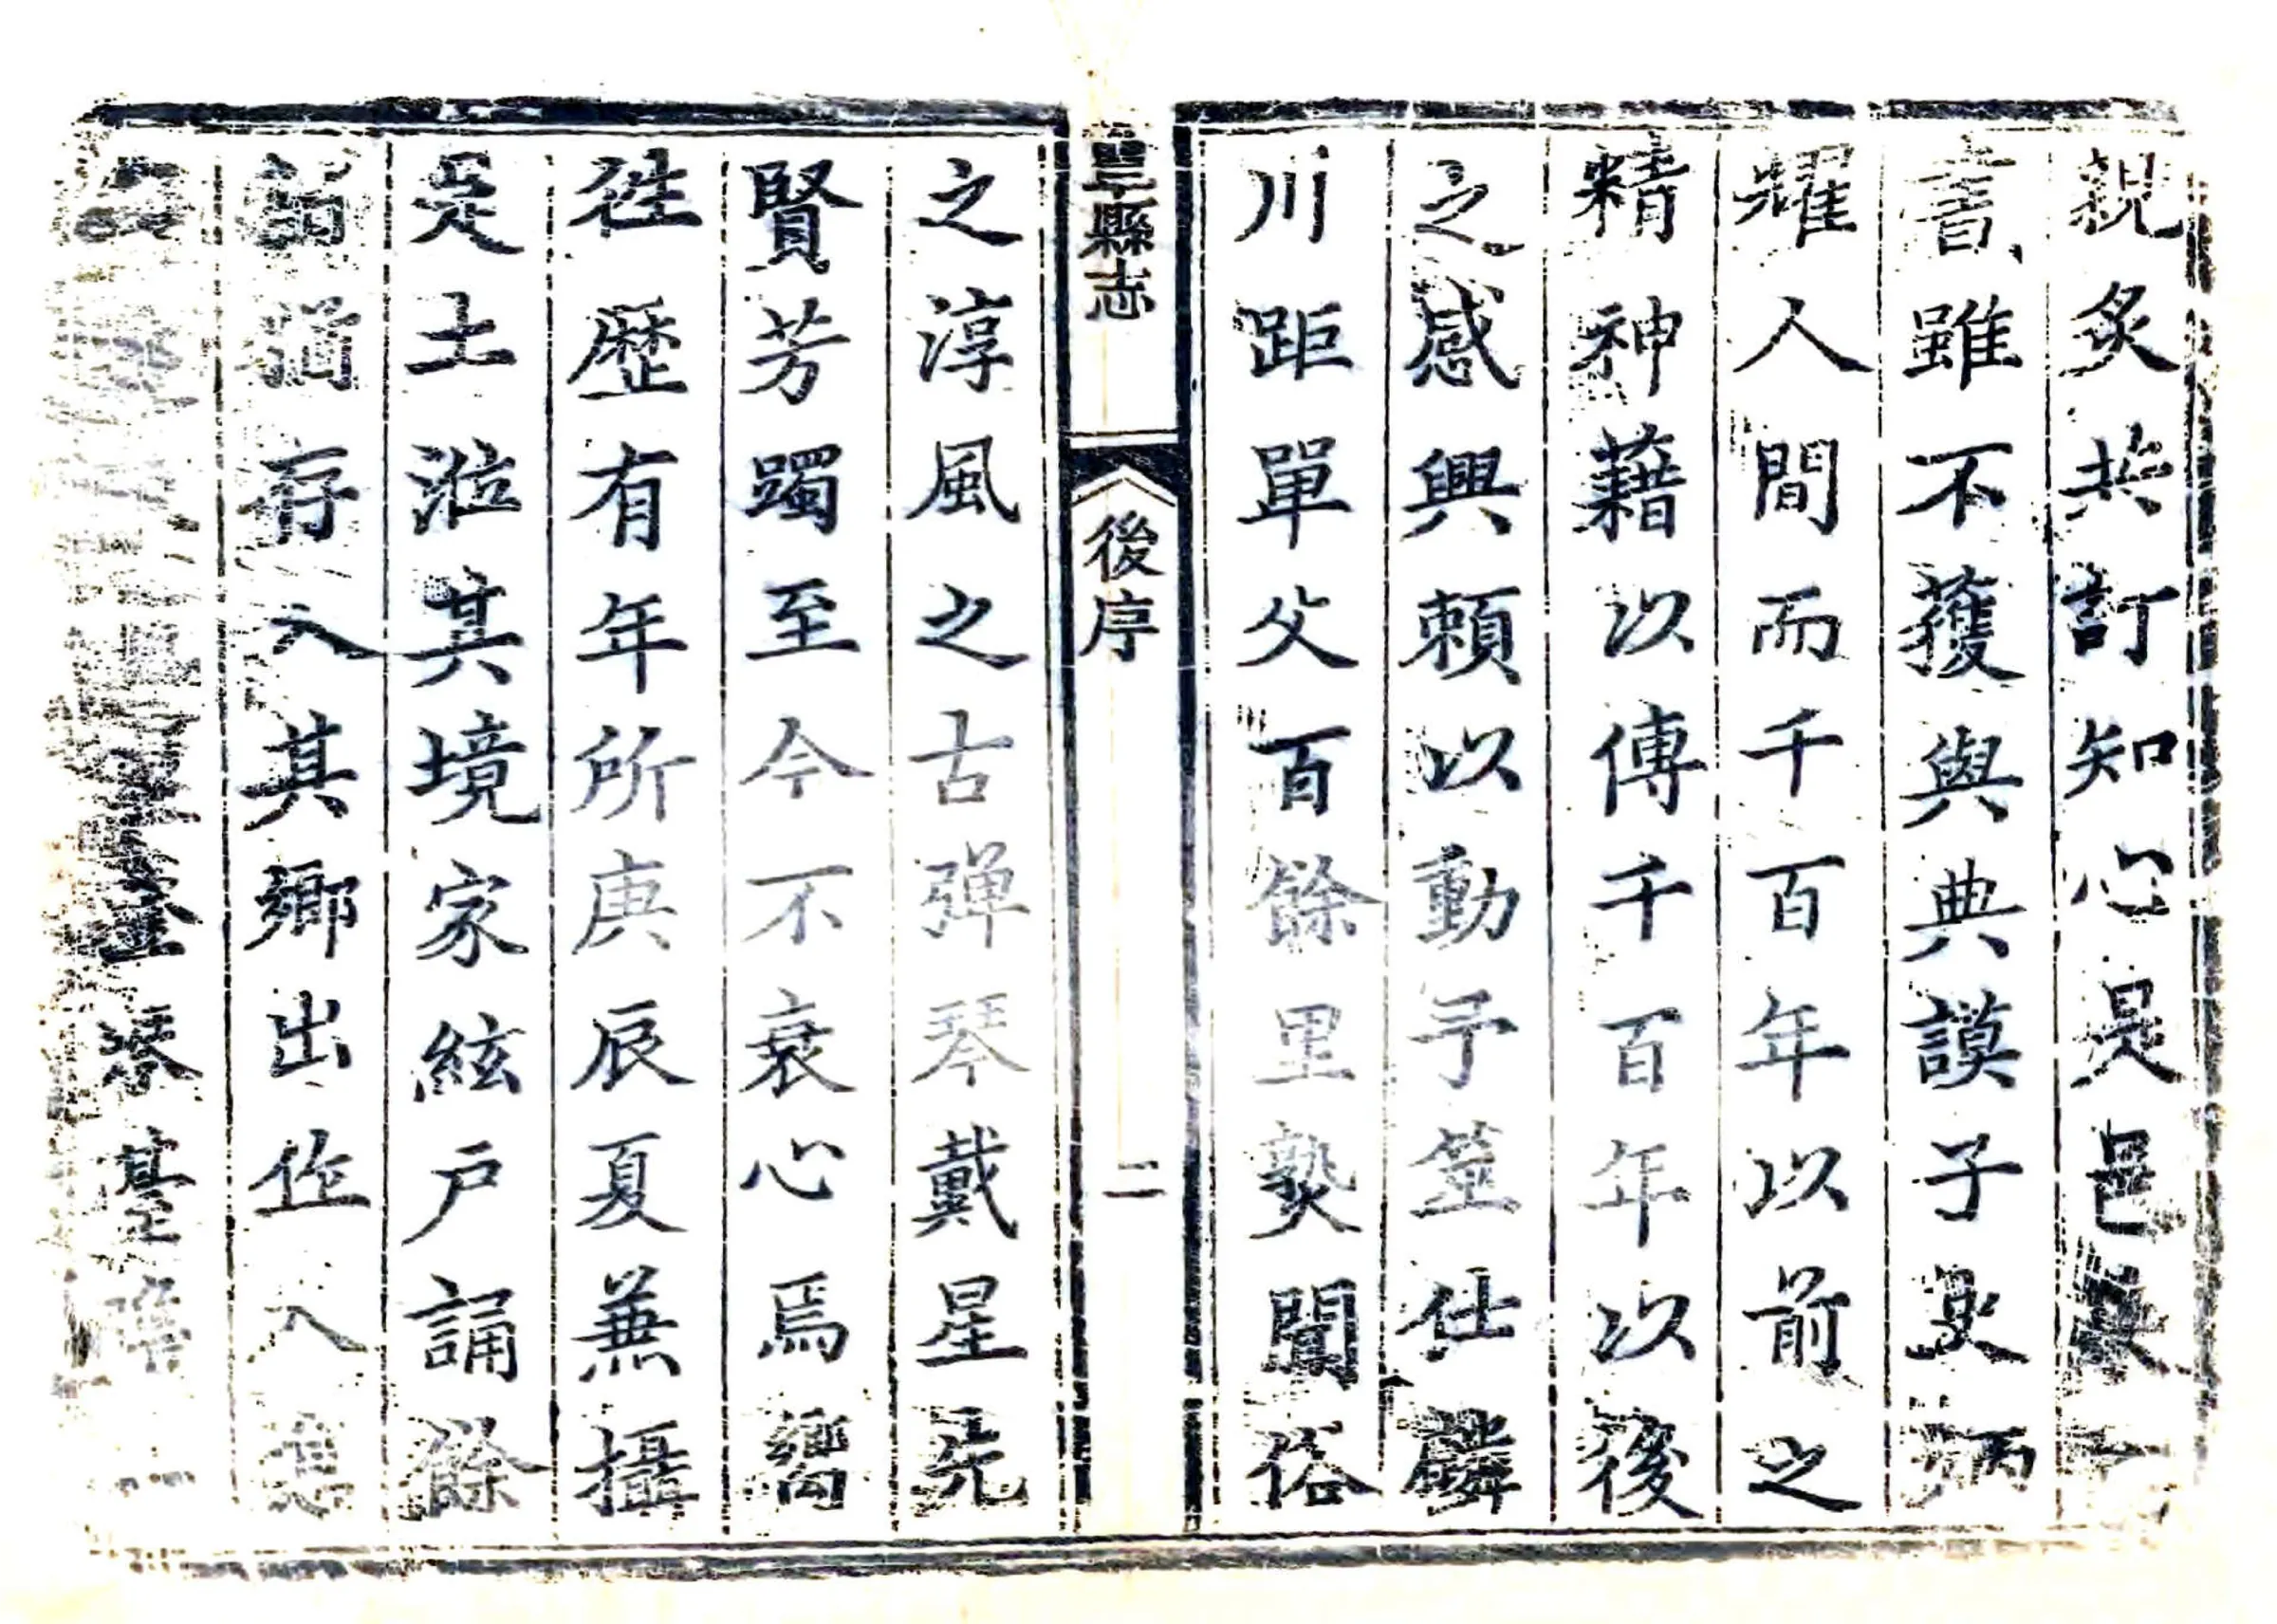 親炙共訂知心是邑
書雖不獲與典謨子史炳
耀人間而千百年以前之
精神藉以傳千百年以後
之感興頼以動予筮仕麟
川距單父百餘里熟聞俗
單縣志
後序
二
之淳風之古弹琴戴星先
賢芳躅至今不衰心焉嚮
徃歷有年所庚辰夏兼攝
是土涖其境家絃戶誦餘
韵猶存入其鄉出作入息
臺琴臺